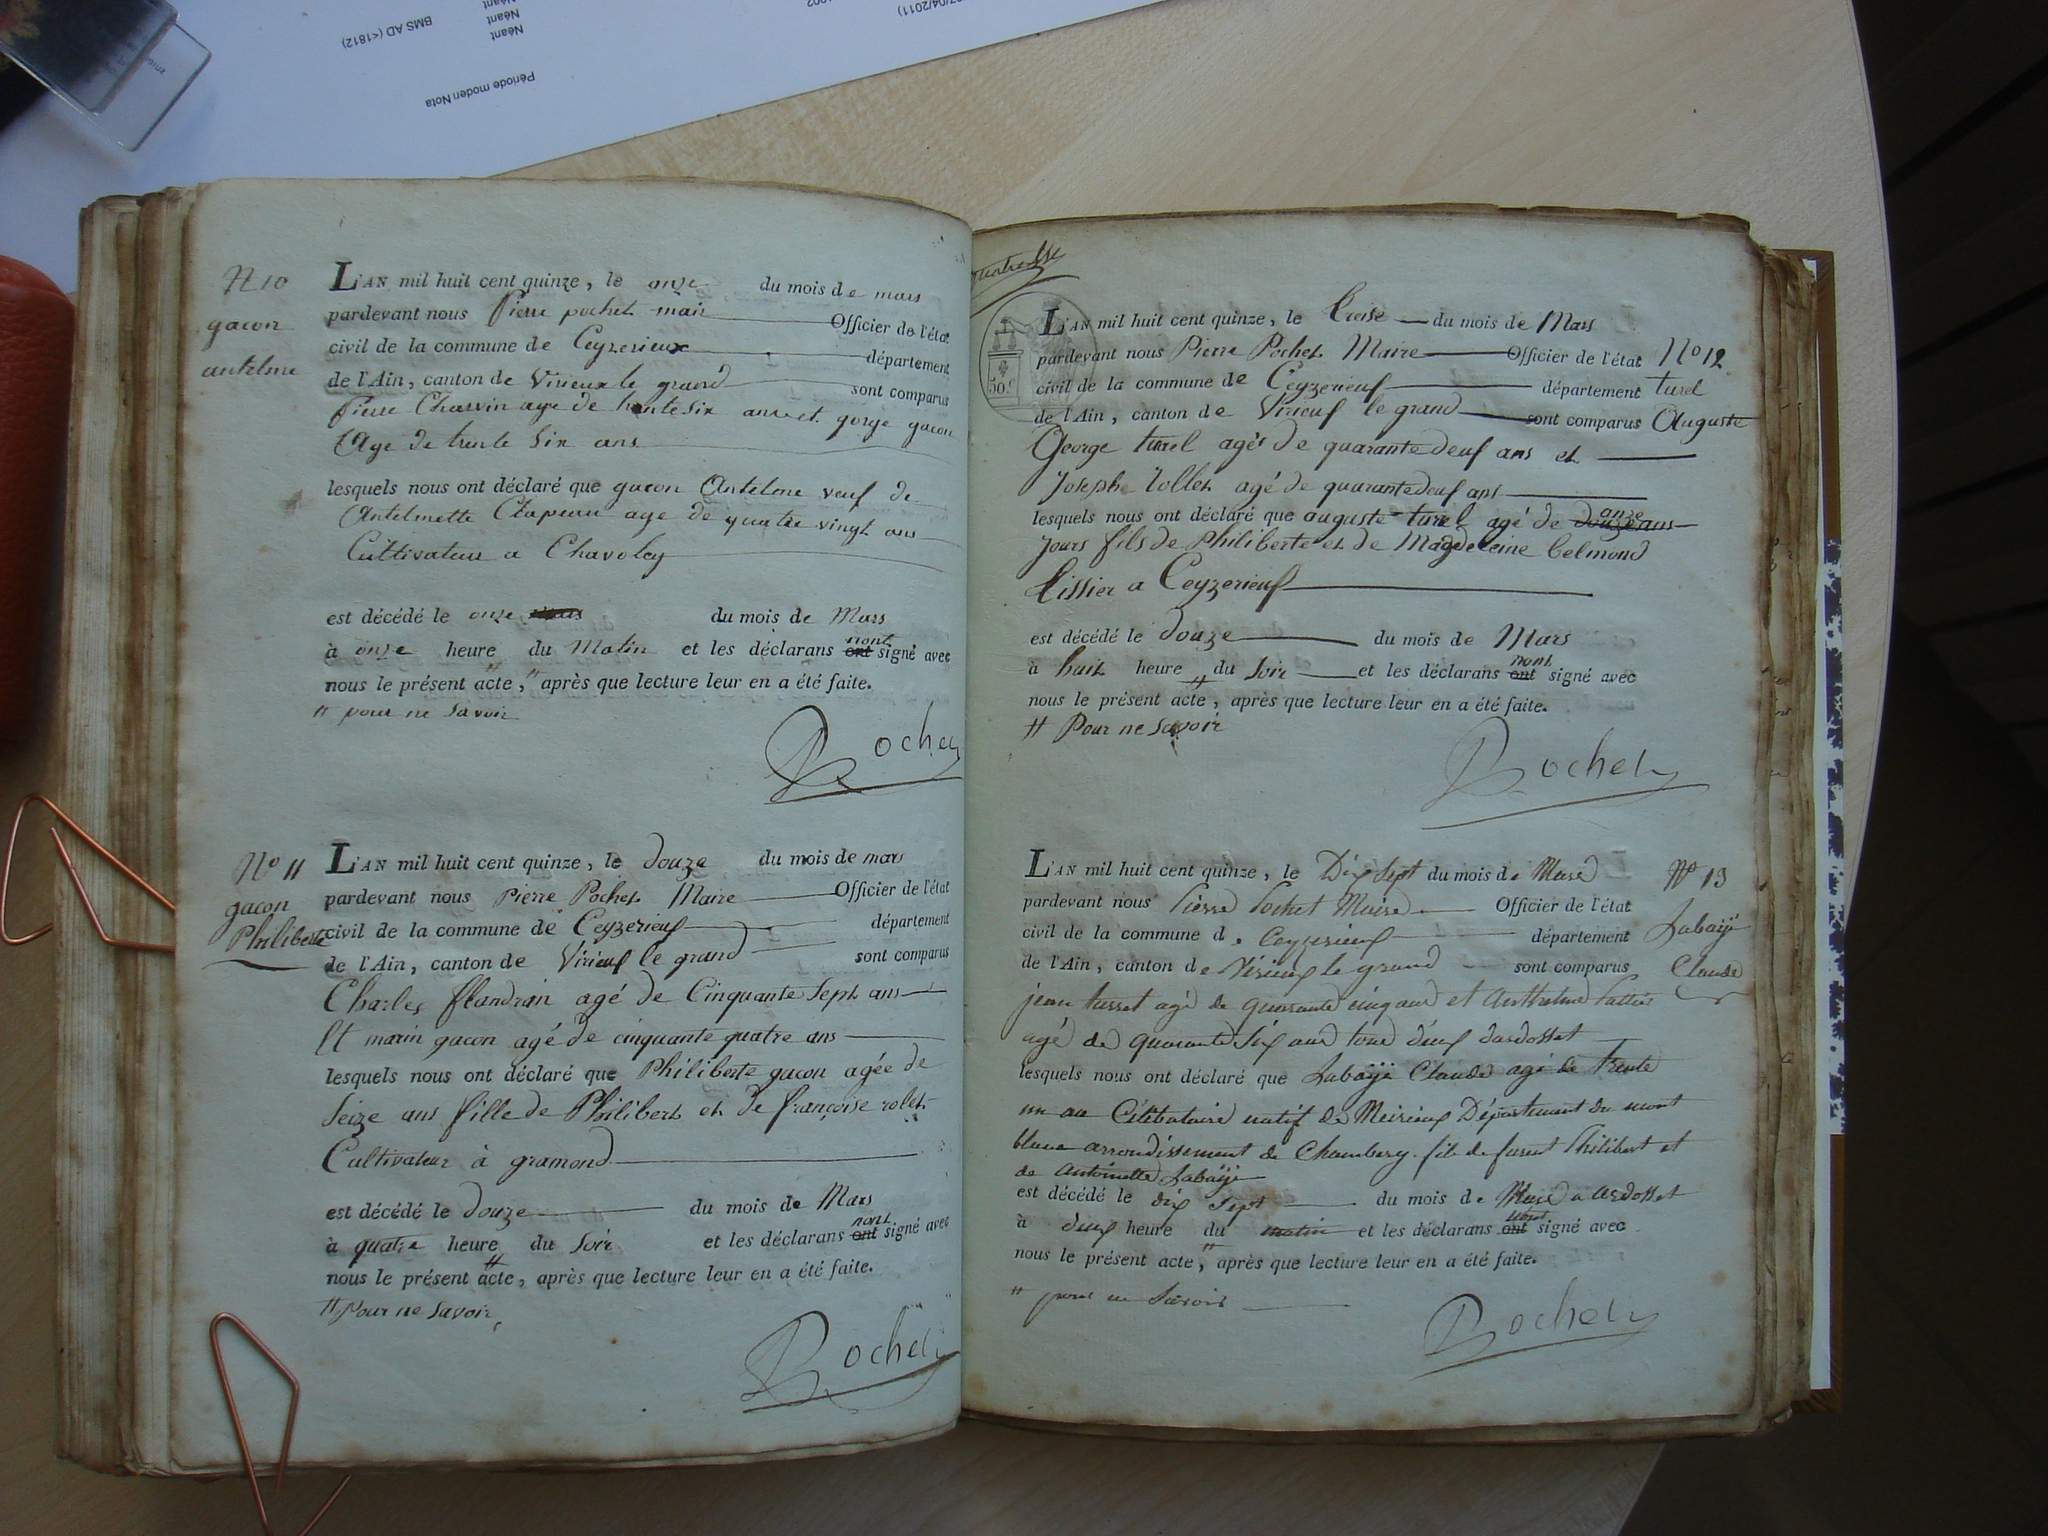 27/04/2011)
1902
BMS AD (<1812)
Néant
Néant
Néant
Période moden Nota
N 10
gacon
antelme
L'AN mil huit cent quinze, le onze du mois de mars
pardevant nous Pierre pochet mair Officier de l'état
civil de la commune de Ceyzerieux département
de l'Ain, canton de Virieux le grand sont comparus
Pierre Charvin age de trente six ans et gorge gacon
Age de trente Six ans
lesquels nous ont déclaré que gacon Antelme veuf de
Antelmette Chapeau age de quatre vingt ans
Cultivateur a Chavoley
est décédé le onze mars du mois de Mars
à onze heure du Matin et les déclarans ont nont signé avec
nous le présent acte, " après que lecture leur en a été faite.
" pour ne savoir
Pochet
No 11
gacon
Philiberte
L'AN mil huit cent quinze, le douze du mois de mars
pardevant nous Pierre Pochet Maire Officier de l'état
civil de la commune de Ceyzerieuf département
de l'Ain, canton de Virieuf le grand sont comparus
Charles flandrin agé de Cinquante Sept ans
Et marin gacon agé de cinquante quatre ans
lesquels nous ont déclaré que Philiberte gacon agée de
Seize ans fille de Philibert et de françoise rolet
Cultivateur à gramond
est décédé le douze du mois de Mars
à quatre heure du Soir et les déclarans ont nont signé avec
nous le présent acte, après que lecture leur en a été faite.
# Pour ne savoir
Pochet
50.c
L'AN mil huit cent quinze, le treise du mois de Mars
pardevant nous Pierre Pochet Maire Officier de l'état
civil de la commune de Ceyzerieuf département
de l'Ain, canton de Virieuf le grand sont comparus
No 12
turel
Auguste
George turel agés de quarante deuf ans et
Joseph Tollet agé de quarante deuf ans
lesquels nous ont déclaré que auguste turel agé de douze ans onze
Jours fils de Philiberte et de Magdeleine belmond
tissier a Ceyzerieuf
est décédé le douze du mois de Mars
à huit heure du Soir et les déclarans ont nont signé avec
nous le présent acte, après que lecture leur en a été faite.
# Pour ne savoir
Pochet
L'AN mil huit cent quinze, le Dix Sept du mois de Mars
pardevant nous Pierre Pochet Maire Officier de l'état
civil de la commune de Ceyzerieux département
de l'Ain, canton de Virieux le grand sont comparus
No 13
Labaÿe
Claude
jean turret agé de quarante cinq ans et Anthelme
agé de quarante six ans tous deux dardosset
lesquels nous ont déclaré que Labaÿe Claude agé de trente
un an Célibataire natif de Meirieux Département du mont
blanc arrondissement de Chambery fils de furent Philibert et
de Antoinette Labaÿe
est décédé le dix Sept du mois de Mars a ardosset
à deux heure du matin et les déclarans ont nont signé avec
nous le présent acte, " après que lecture leur en a été faite.
" pour ne savoir
Pochet